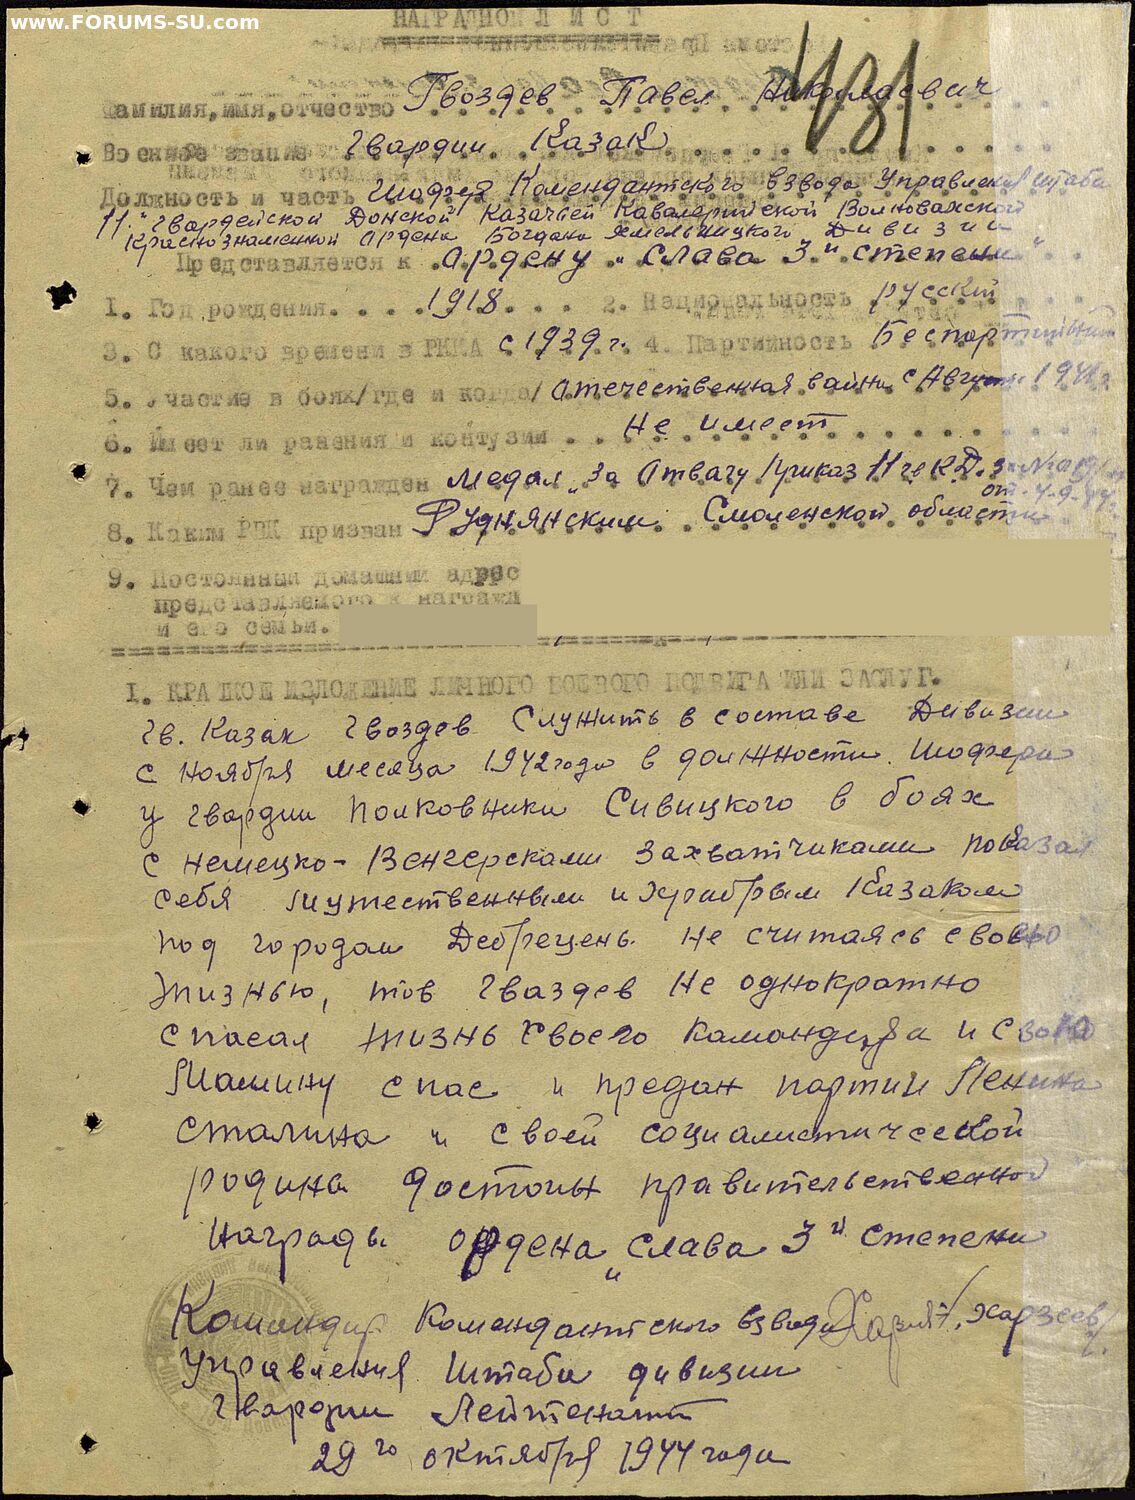 www.FORUMS-SU.com
НАГРАДНОЙ ЛИСТ
481
Фамилия, имя, отчество Гвоздев Павел Николаевич
Военное звание Гвардии Казак
Должность и часть Шофер Комендантского взвода Управления штаба
11. Гвардейской Донской Казачьей Кавалерийской Волновахской
Краснознаменной Ордена Богдана Хмельницкого Дивизии
Представляется к Ордену „Слава 3й степени"
1. Год рождения. . . . 1918 . . . 2. Национальность русский
3. С какого времени в РККА с 1939 г. 4. Партийность Беспартийный
5. Участие в боях/где и когда/ Отечественная вайна с Августа 1941 г.
6. Имеет ли ранения и контузии . . Не имеет
7. Чем ранее награжден Медал „За Отвагу Приказ 11 гв КД.
от 4.9.44 г.
8. Каким РВК призван Руднянским Смоленской области
9. Постоянный домашний адрес
представляемого к награжд
и его семьи.
I. КРАТКОЕ ИЗЛОЖЕНИЕ ЛИЧНОГО БОЕВОГО ПОДВИГА ИЛИ ЗАСЛУГ.
Гв. Казак Гвоздев Служить в составе Дивизии
с Ноября месяца 1942 года в должности Шофера
у Гвардии Полковника Сивицкого в боях
с немецко-Венгерсками захватчиками показал
себя мужественным и храбрым Казаком
под городам Дебрецень. Не считаясь с своею
жизнью, тов Гваздев Не однократно
спасал жизнь своего командира и свою
Машину спас и предан партии Ленина
Сталина и своей социалистической
родина достоин правительственной
Награды ордена „Слава 3й степени
Командир Комендантского взвода /Харзеев/
Управления Штаба дивизии
Гвардии Лейтенант
29го октября 1944 года